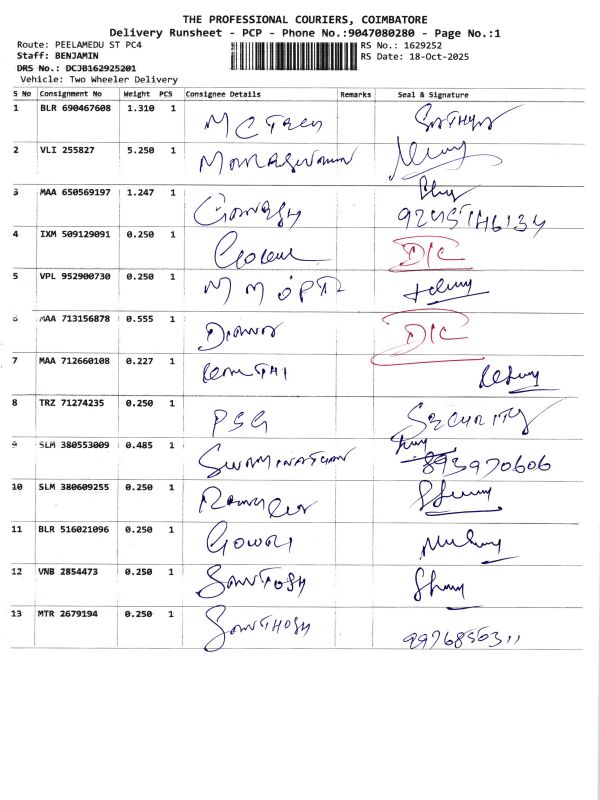 THE PROFESSIONAL COURIERS, COIMBATORE
Delivery Runsheet - PCP - Phone No.:9047080280 - Page No.:1
Route: PEELAMEDU ST PC4
RS No.: 1629252
Staff: BENJAMIN
RS Date: 18-Oct-2025
DRS No.: DCJB162925201
Vehicle: Two Wheeler Delivery
S No Consignment No Weight PCS Consignee Details Remarks Seal & Signature
1 BLR 690467608 1.310 1 MCTECH
2 VLI 255827 5.250 1
3 MAA 650569197 1.247 1 GANESH
4 IXM 509129091 0.250 1 Gokul D/C
5 VPL 952900730 0.250 1 M M OPTZ
6 MAA 713156878 0.555 1 D/C
7 MAA 712660108 0.227 1
8 TRZ 71274235 0.250 1 PSG SECURITY
9 SLM 380553009 0.485 1 SWAMINATHAN
893970606
10 SLM 380609255 0.250 1
11 BLR 516021096 0.250 1 GOWRI
12 VNB 2854473 0.250 1 SANTOSH
13 MTR 2679194 0.250 1 SANTHOSH